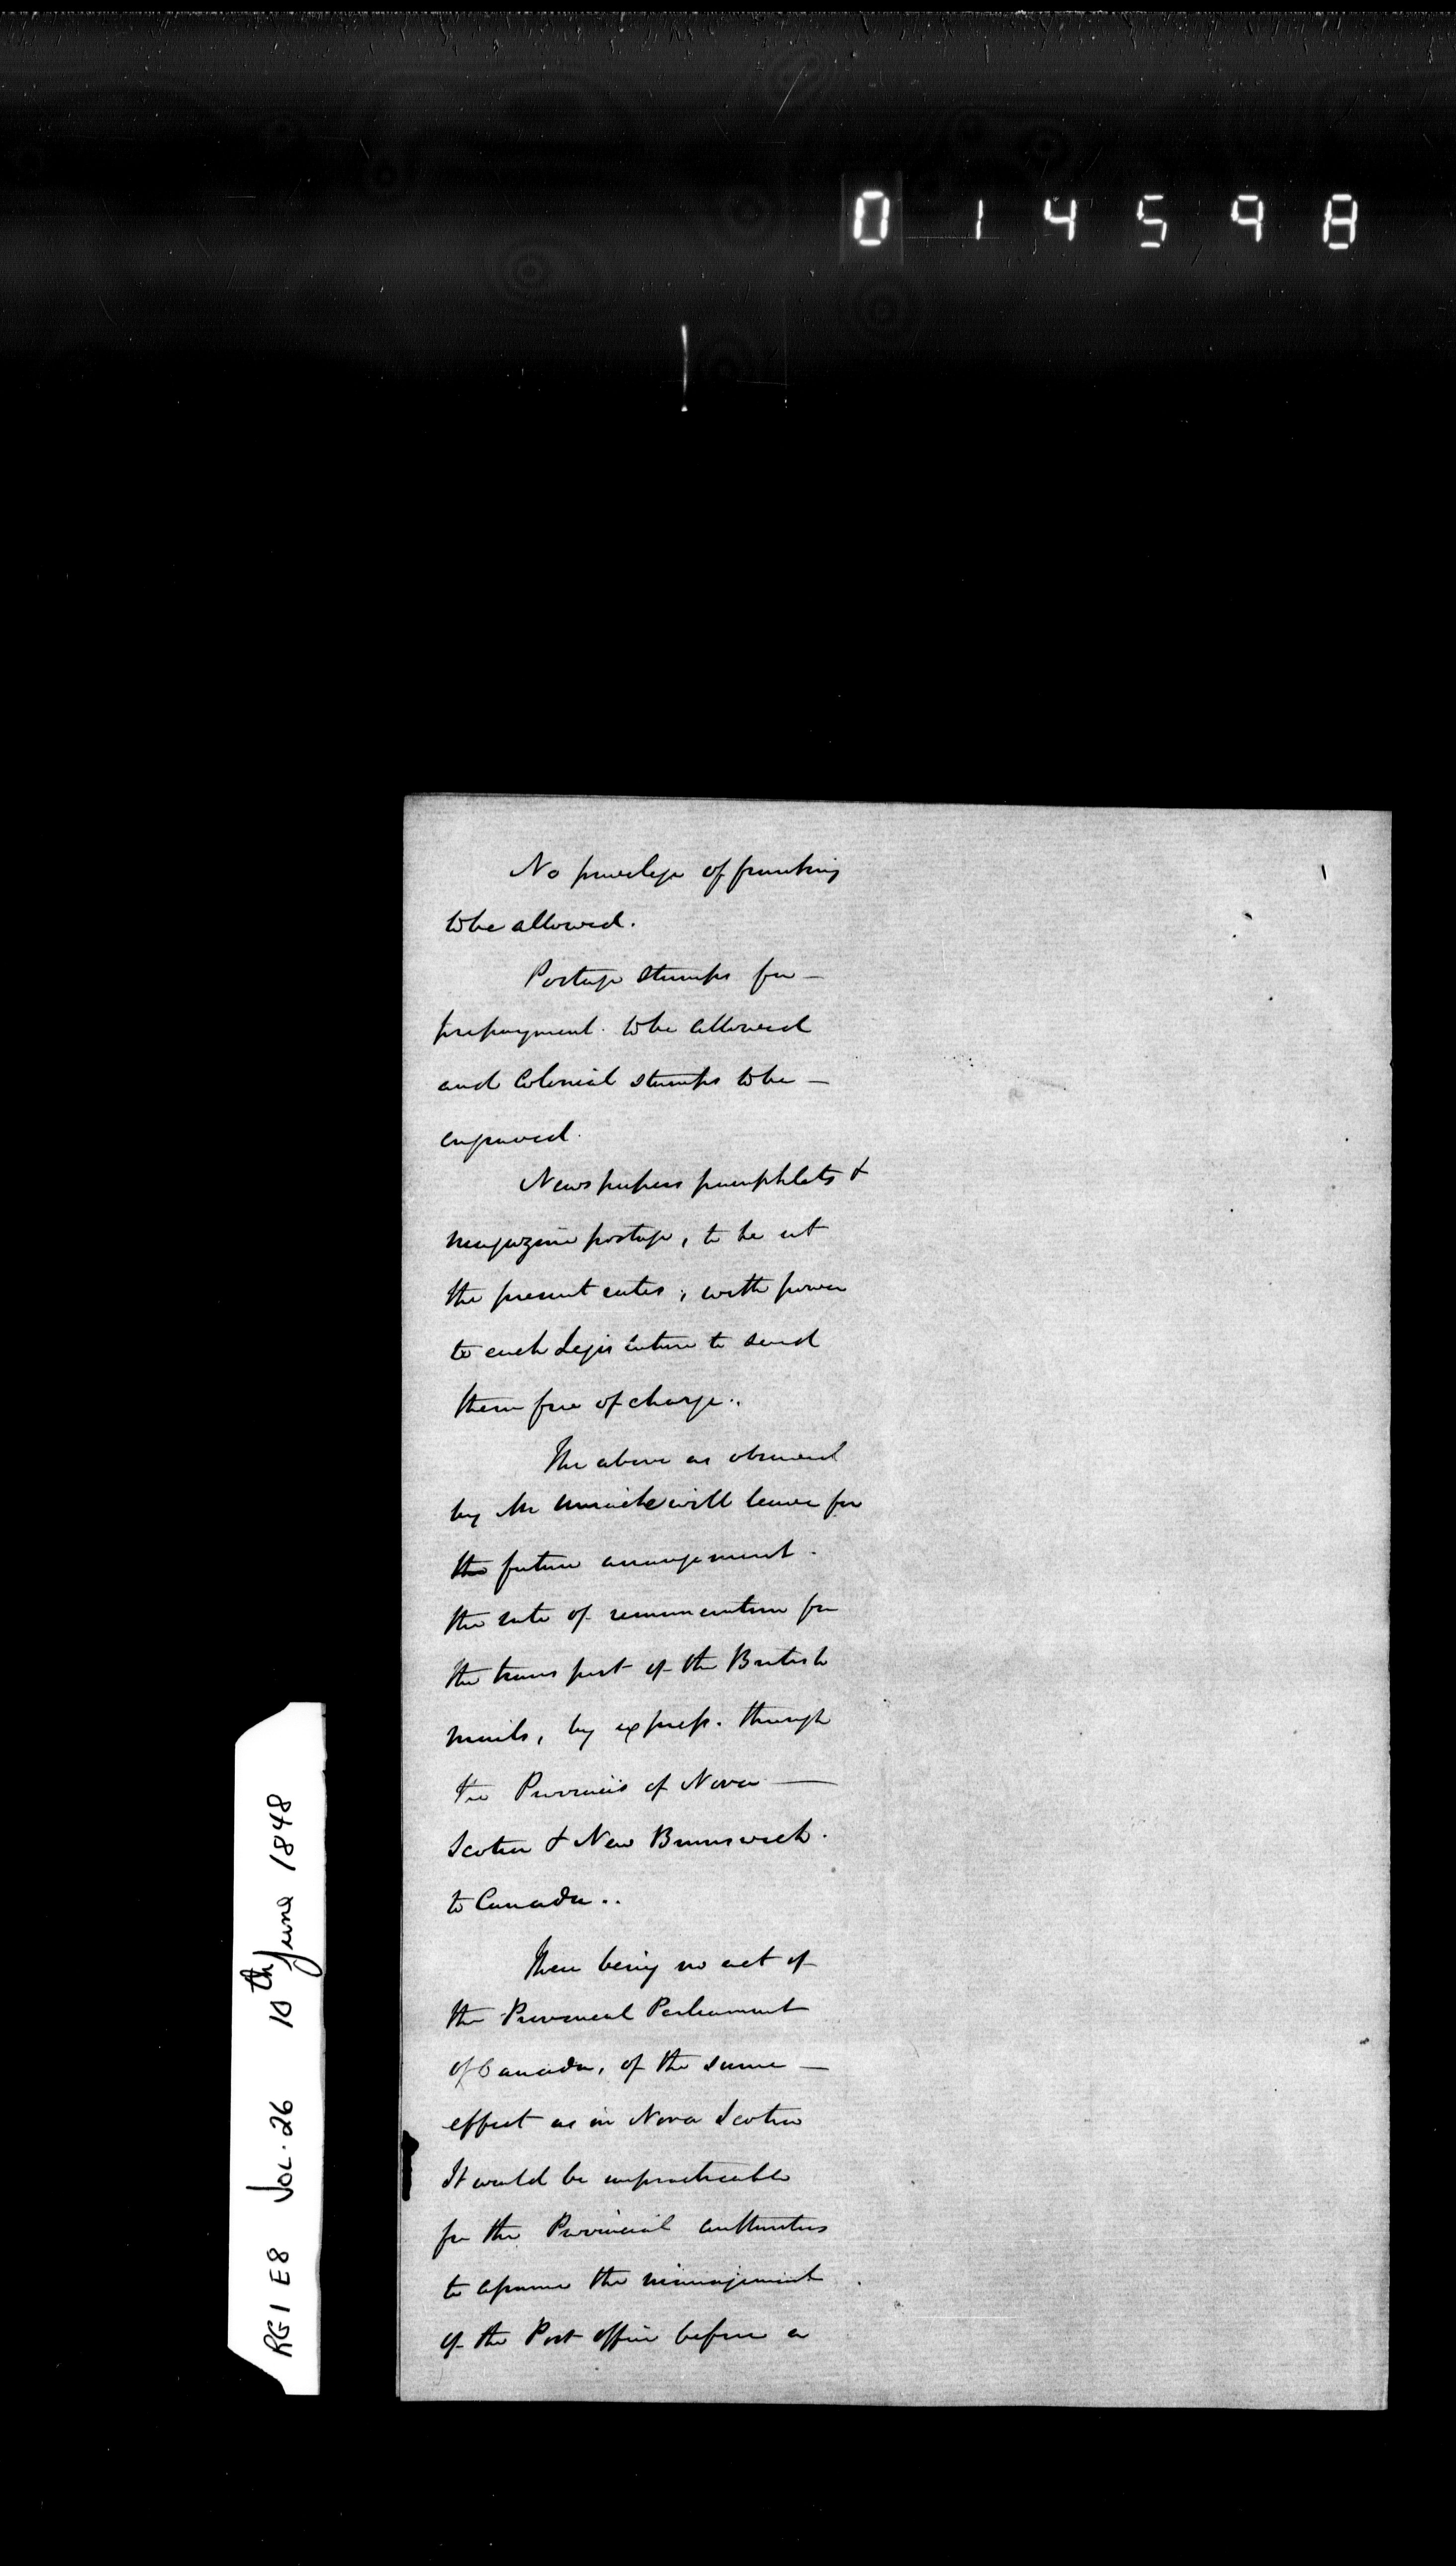 014598
No privilege of franking
to be allowed.
Postage stamps for —
prepayment. to be allowed
and Colonial stamps to be —
engraved.
Newspapers pamphlets &
magazine postage, to be at
the present rates, with power
to each Legislature to send
them free of charge..
The above as observed
by Mr will leave for
the future arrangement.
the rate of remuneration for
the transport of the British
mails, by express. through
the Provinces of Nova —
Scotia & New Brunswick.
to Canada..
There being no act of
the Provincial Parliament
of Canada, of the same —
effect as in Nova Scotia
It would be impracticable
for the Provincial authorities
to assume the management
of the Post office before a
RG1 E8 Vol. 26 10th June 1848